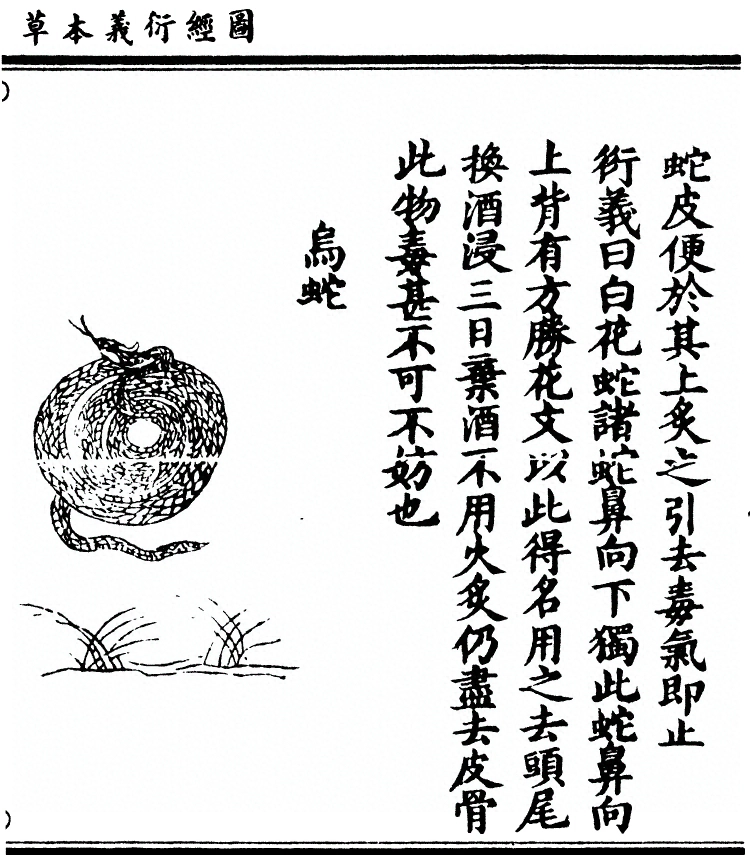 草本義衍經圖
蛇皮便於其上炙之引去毒氣即止
衍義曰白花蛇諸蛇鼻向下獨此蛇鼻向
上背有方勝花文以此得名用之去頭尾
換酒浸三日棄酒不用火炙仍盡去皮骨
此物毒甚不可不妨也
烏蛇